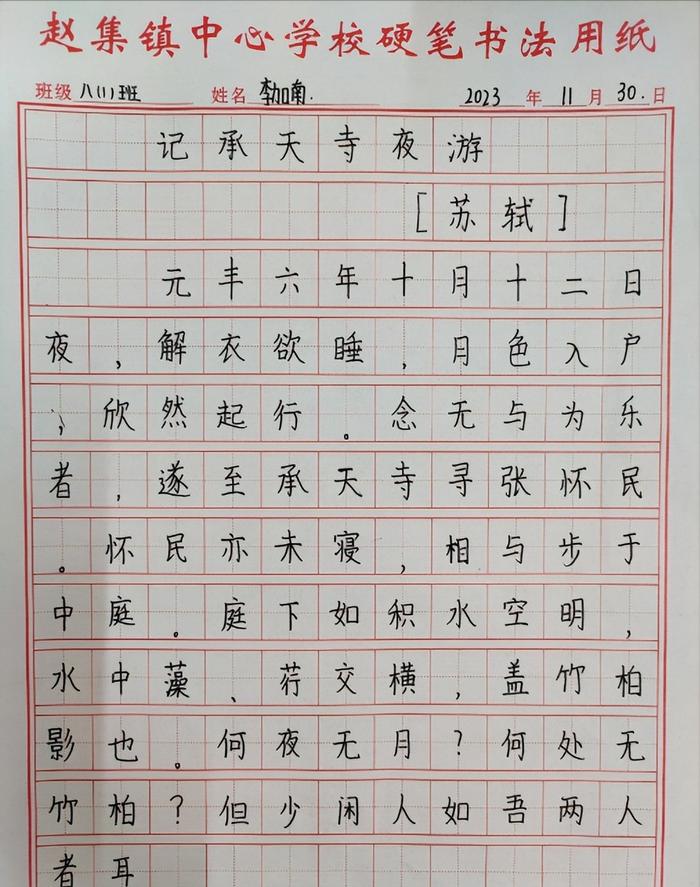 赵集镇中心学校硬笔书法用纸
班级 八(1)班 姓名 李加南. 2023 年 11 月 30. 日
记承天寺夜游
[苏轼]
元丰六年十月十二日
夜,解衣欲睡,月色入户
,欣然起行。念无与为乐
者,遂至承天寺寻张怀民
。怀民亦未寝,相与步于
中庭。庭下如积水空明,
水中藻、荇交横,盖竹柏
影也。何夜无月?何处无
竹柏?但少闲人如吾两人
者耳